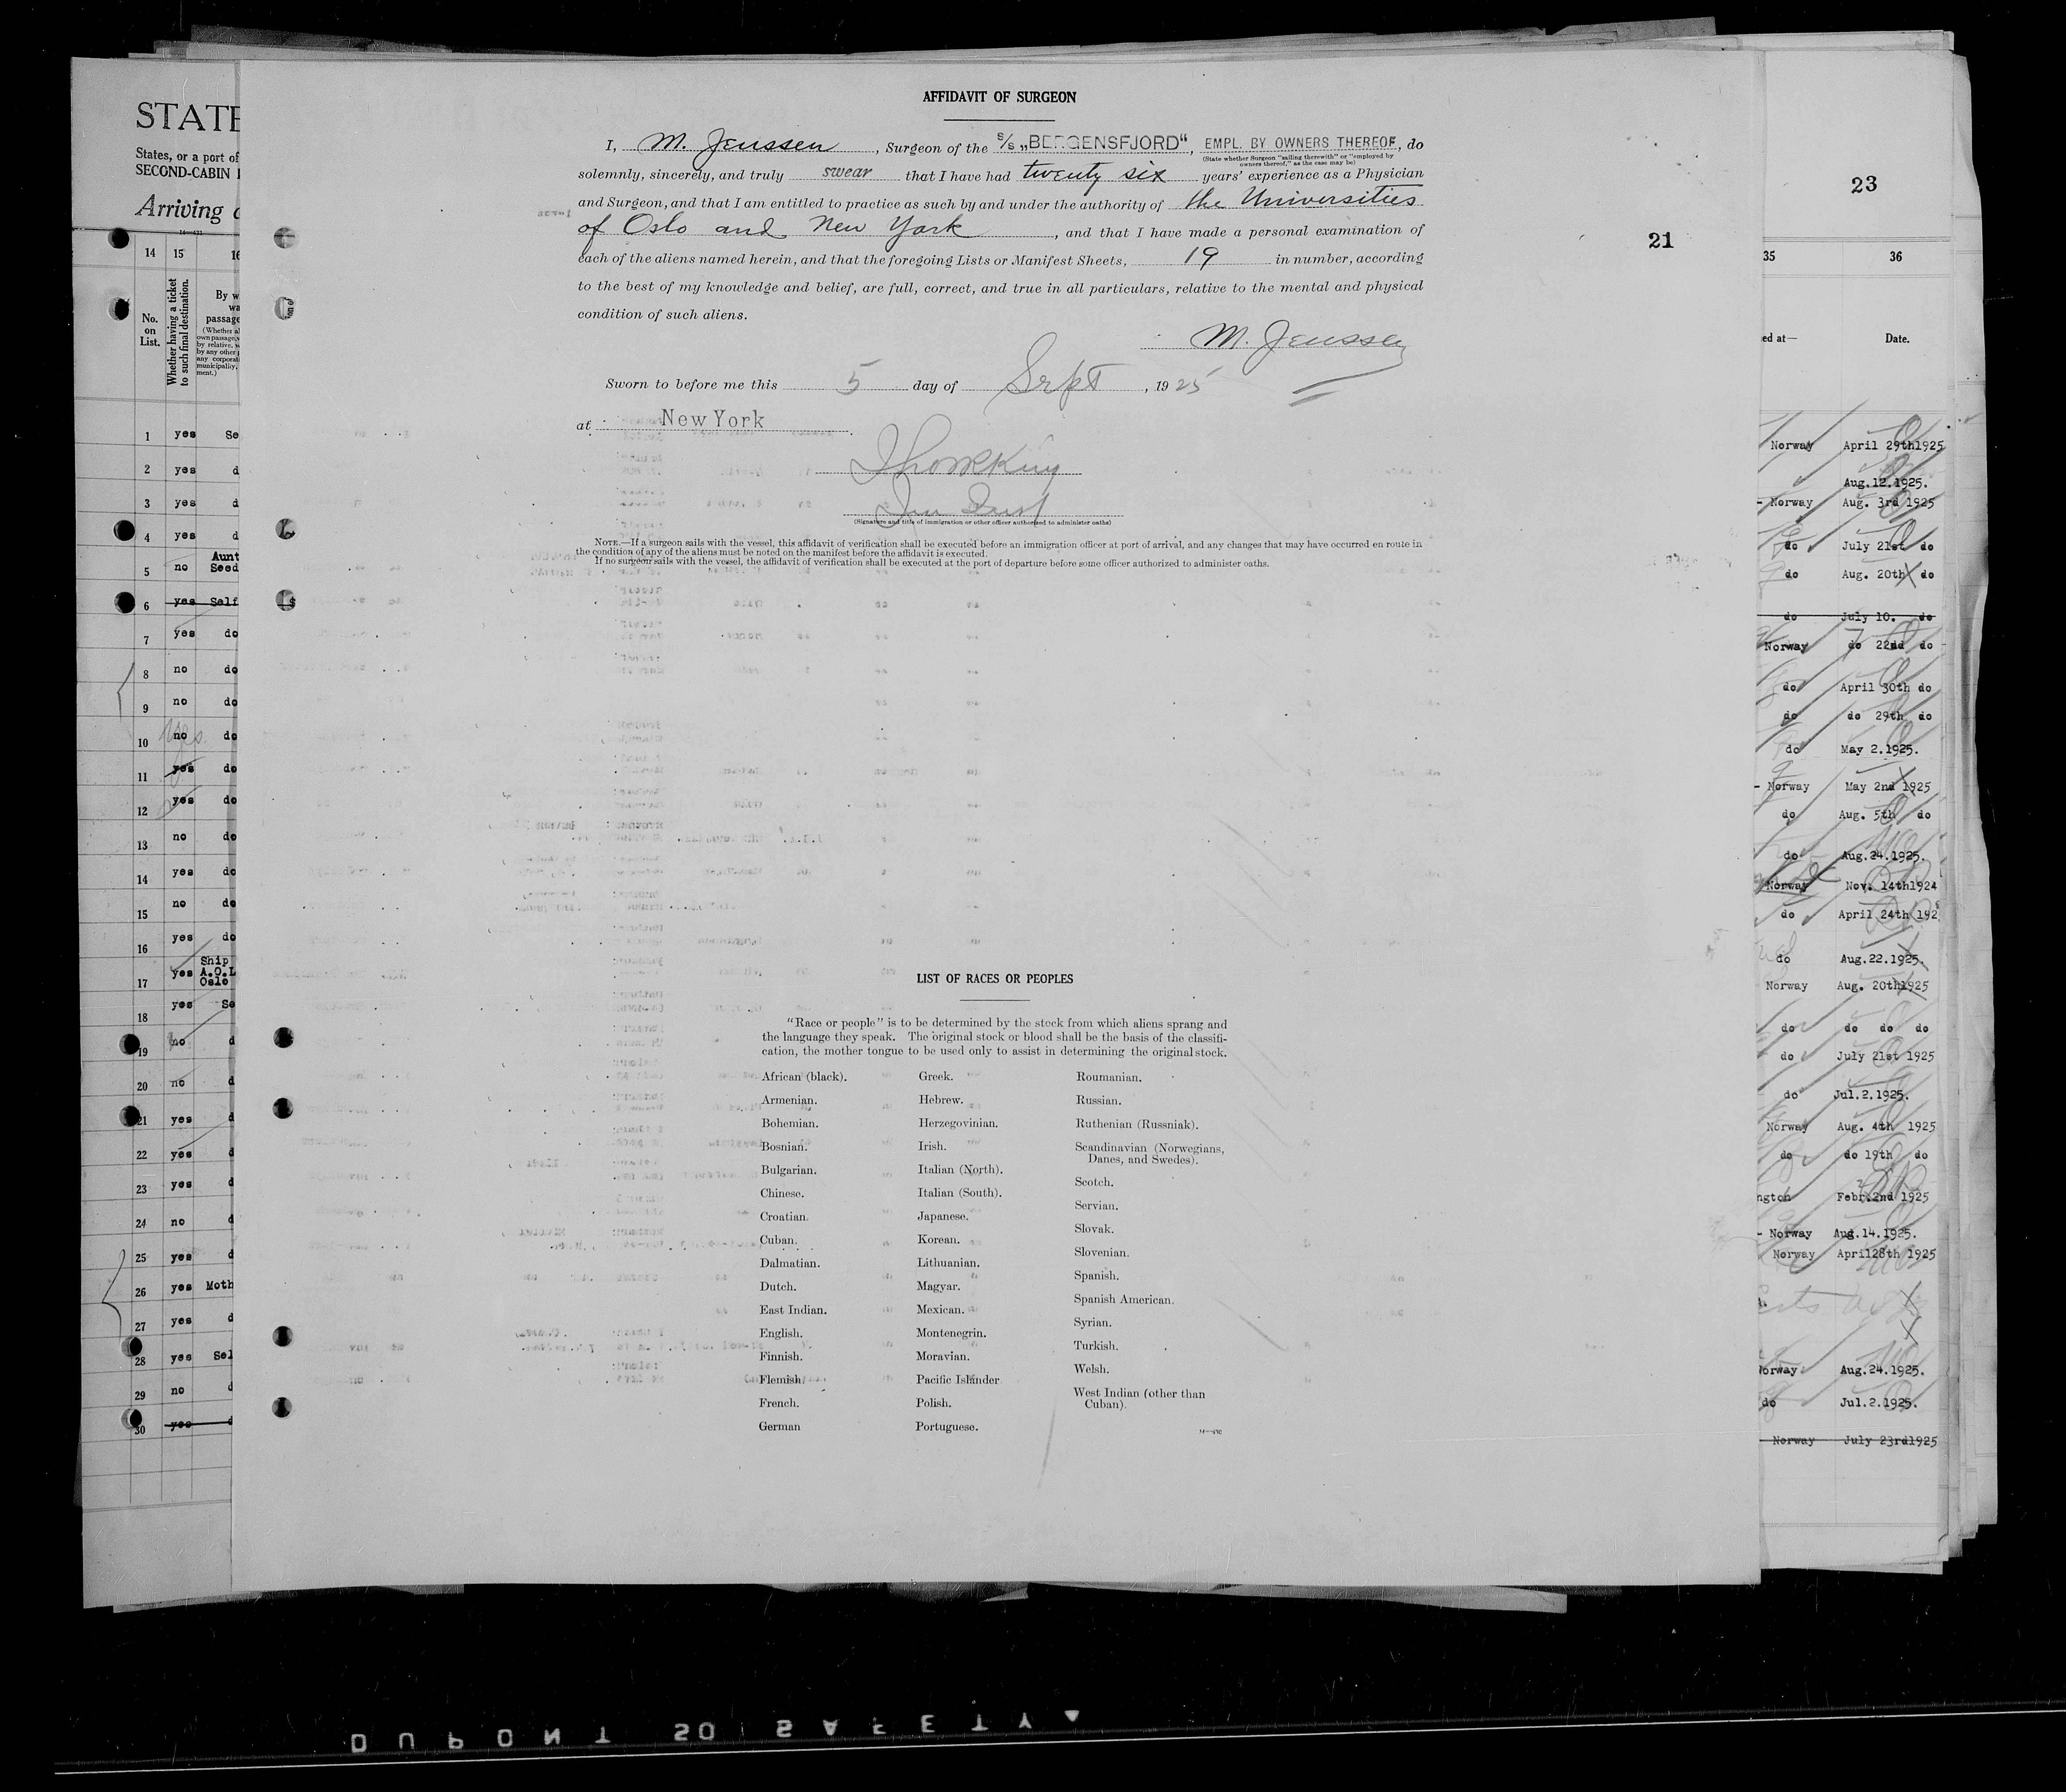 AFFIDAVIT OF SURGEON
I, M. Jenssen, Surgeon of the S/S „BERGENSFJORD“, EMPL. BY OWNERS THEREOF, do
(State whether Surgeon "sailing therewith" or "employed by
owners thereof," as the case may be)
solemnly, sincerely, and truly swear that I have had twenty six years' experience as a Physician
and Surgeon, and that I am entitled to practice as such by and under the authority of the Universities
of Oslo and New York, and that I have made a personal examination of
each of the aliens named herein, and that the foregoing Lists or Manifest Sheets, 19 in number, according
to the best of my knowledge and belief, are full, correct, and true in all particulars, relative to the mental and physical
condition of such aliens.
M. Jenssen
Sworn to before me this 5 day of Sept, 1925
at New York
(Signature and title of immigration or other officer authorized to administer oaths)
NOTE.—If a surgeon sails with the vessel, this affidavit of verification shall be executed before an immigration officer at port of arrival, and any changes that may have occurred en route in
the condition of any of the aliens must be noted on the manifest before the affidavit is executed.
If no surgeon sails with the vessel, the affidavit of verification shall be executed at the port of departure before some officer authorized to administer oaths.
21
LIST OF RACES OR PEOPLES
"Race or people" is to be determined by the stock from which aliens sprang and
the language they speak. The original stock or blood shall be the basis of the classifi-
cation, the mother tongue to be used only to assist in determining the original stock.
African (black).
Armenian.
Bohemian.
Bosnian.
Bulgarian.
Chinese.
Croatian.
Cuban.
Dalmatian.
Dutch.
East Indian.
English.
Finnish.
Flemish
French.
German
Greek.
Hebrew.
Herzegovinian.
Irish.
Italian (North).
Italian (South).
Japanese.
Korean.
Lithuanian.
Magyar.
Mexican.
Montenegrin.
Moravian.
Pacific Islander
Polish.
Portuguese.
Roumanian.
Russian.
Ruthenian (Russniak).
Scandinavian (Norwegians,
Danes, and Swedes).
Scotch.
Servian.
Slovak.
Slovenian.
Spanish.
Spanish American.
Syrian.
Turkish.
Welsh.
West Indian (other than
Cuban).
STATE
States, or a port of
SECOND-CABIN
Arriving
14 15 16
No.
on
List.
Whether having a ticket
to such final destination.
By w
wa
passage
(Whether al
own passage, w
by relative, w
by any other p
any corporat
municipality,
ment.)
1 yes Se
2 yes d
3 yes d
4 yes d
Aunt
5 no Seed
6 yes Self
7 yes do
8 no do
9 no do
10 no do
11 yes do
12 yes do
13 no do
14 yes do
15 no do
16 yes do
Ship
17 yes A.O.L
Oslo
18 yes Se
19 no d
20 no d
21 yes d
22 yes d
23 yes d
24 no d
25 yes d
26 yes Moth
27 yes d
28 yes Sel
29 no d
30 yes d
23
35 36
ed at— Date.
Norway April 29th1925
Aug.12.1925.
- Norway Aug. 3rd 1925
do July 21st do
do Aug. 20th do
do July 10. do
Norway do 22nd do
do April 30th do
do do 29th do
do May 2.1925.
- Norway May 2nd 1925
do Aug. 5th do
do Aug.24.1925.
Norway Nov. 14th1924
do April 24th 192
do Aug.22.1925.
Norway Aug. 20th1925
do do do do
do July 21st 1925
do Jul.2.1925.
Norway Aug. 4th 1925
do do 19th do
ngton Febr.2nd 1925
- Norway Aug.14.1925.
Norway April28th 1925
Norway Aug.24.1925.
do Jul.2.1925.
Norway July 23rd1925
DUPONT SAFETY